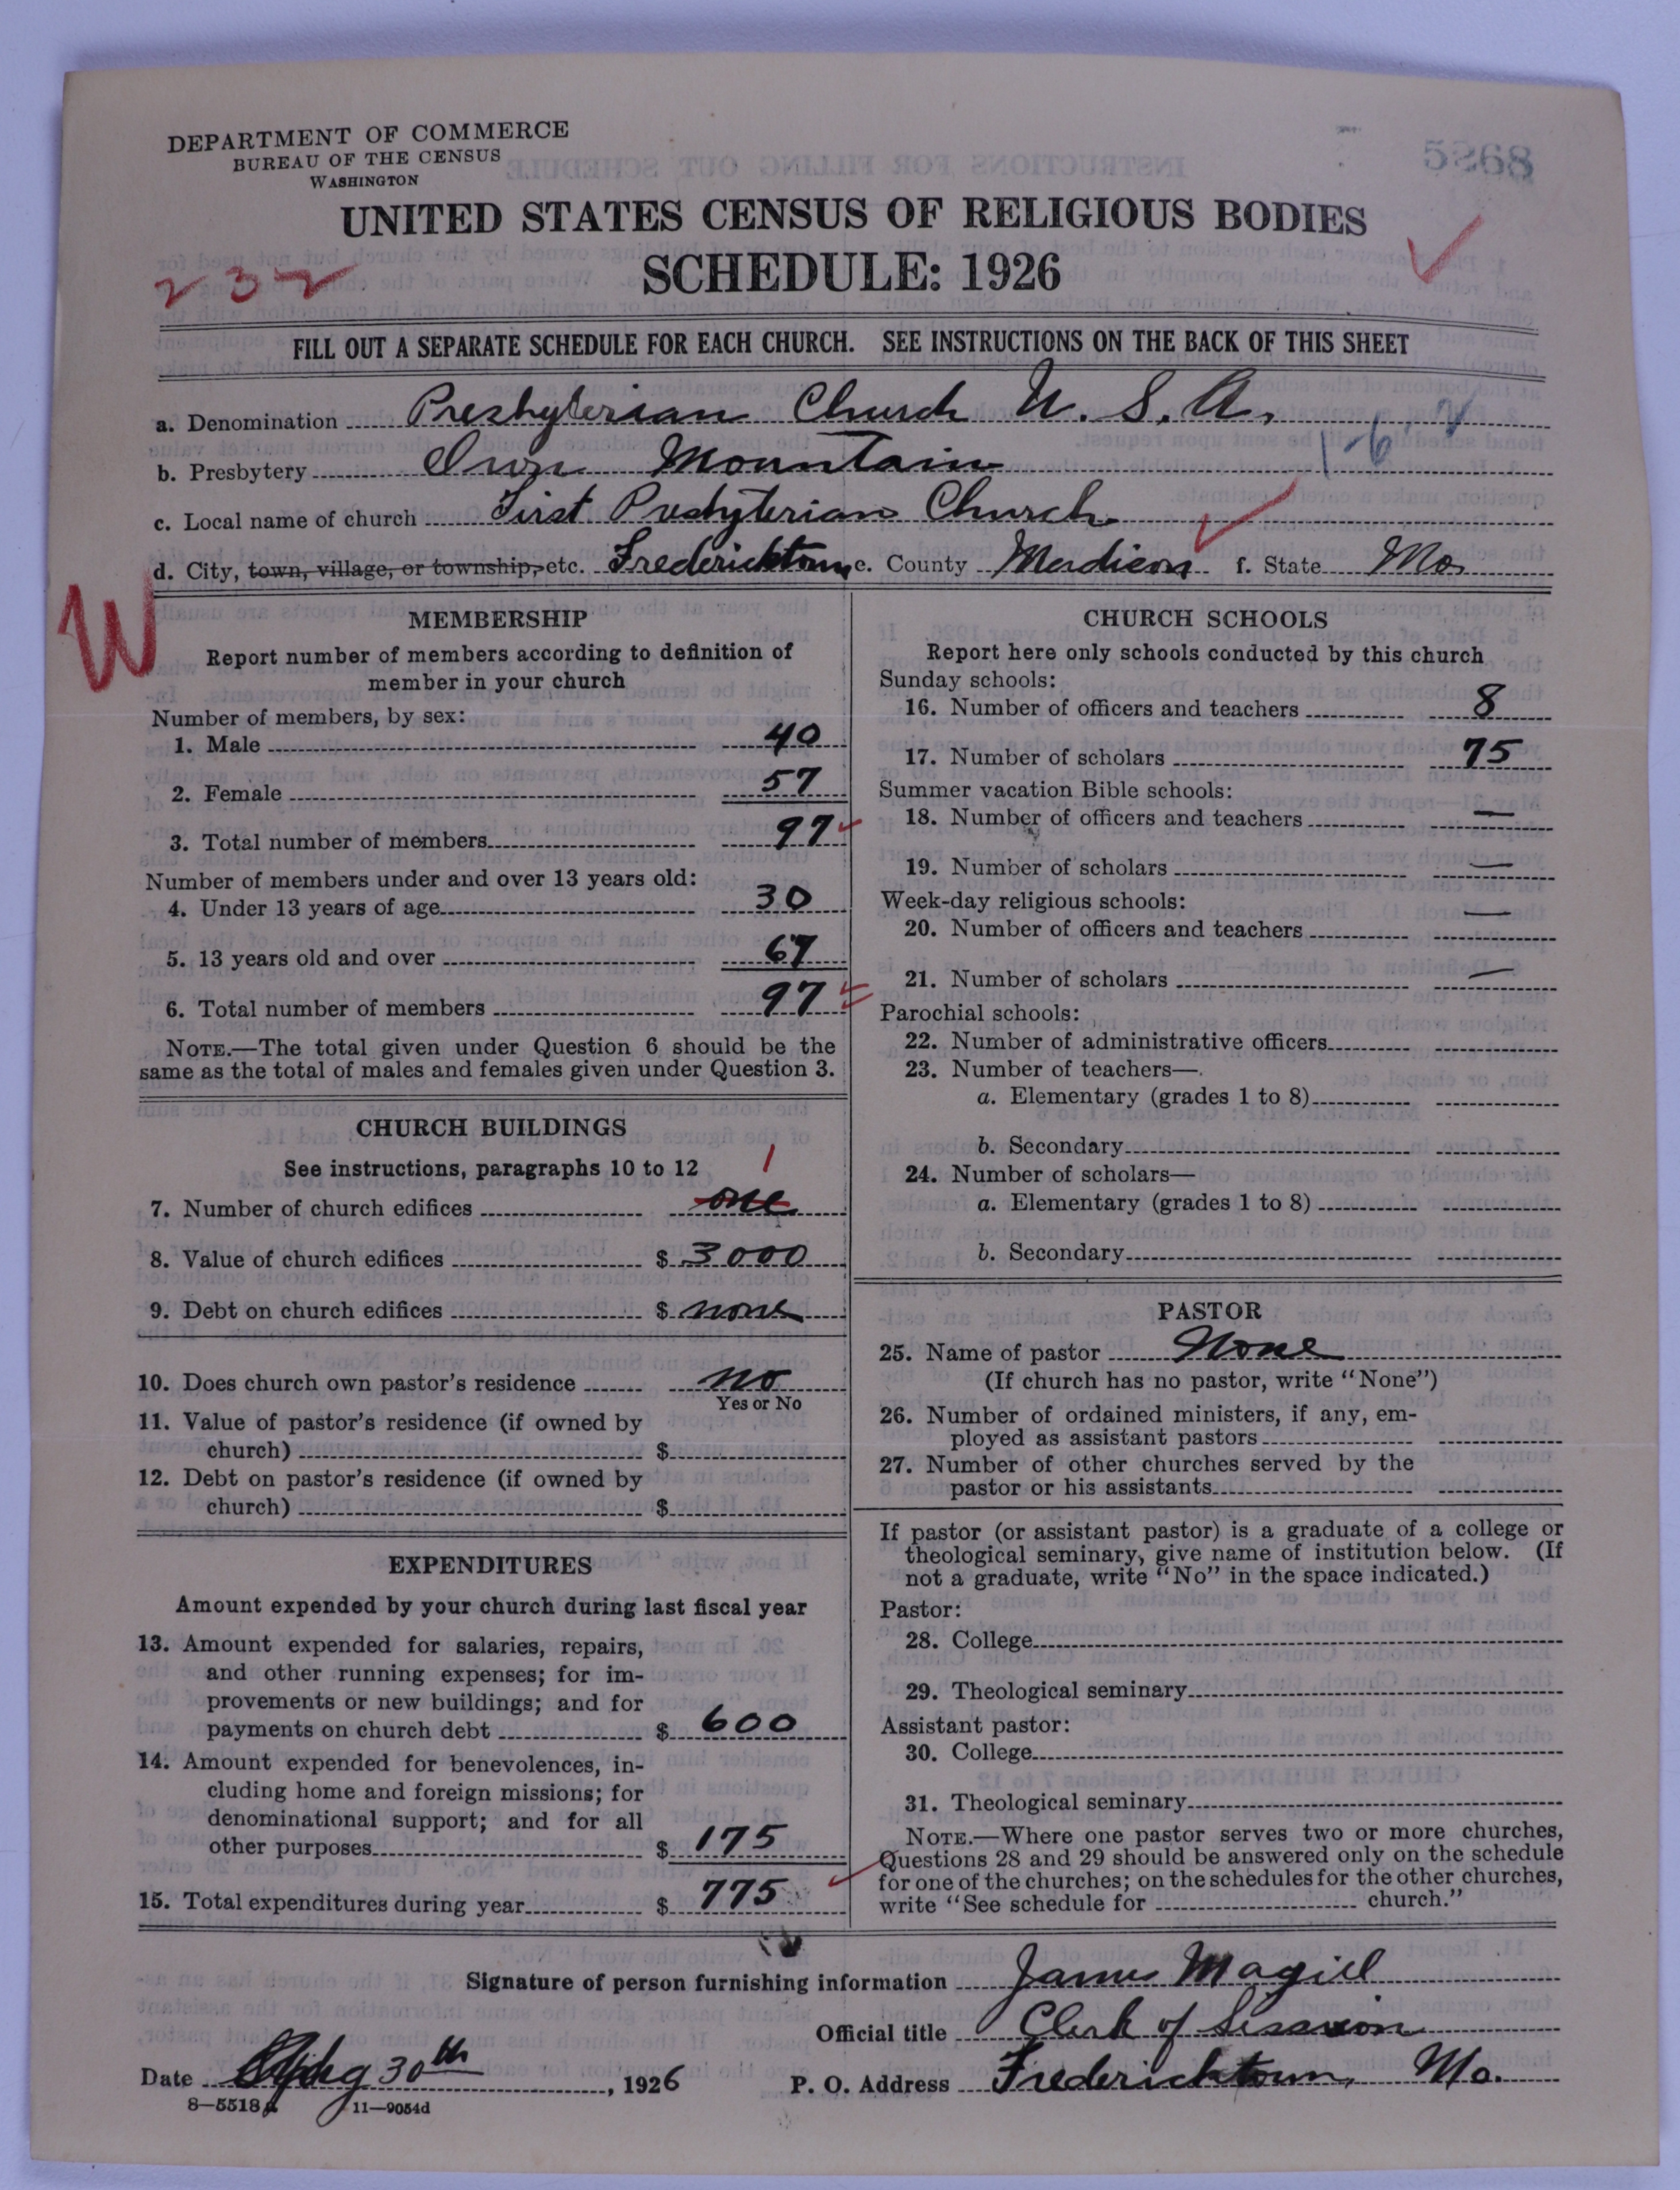 DEPARTMENT OF COMMERCE
BUREAU OF THE CENSUS
WASHINGTON
5268
UNITED STATES CENSUS OF RELIGIOUS BODIES
SCHEDULE: 1926
232
FILL OUT A SEPARATE SCHEDULE FOR EACH CHURCH. SEE INSTRUCTIONS ON THE BACK OF THIS SHEET
a. Denomination Presbyterian Church U. S. A.
b. Presbytery Iron Mountain 1-6
c. Local name of church First Presbyterian Church
d. City, town, village, or township, etc. Fredericktown e. County Madison f. State Mo
W
MEMBERSHIP
Report number of members according to definition of
member in your church
Number of members, by sex:
1. Male 40
2. Female 57
3. Total number of members 97
Number of members under and over 13 years old:
4. Under 13 years of age 30
5. 13 years old and over 67
6. Total number of members 97
NOTE.—The total given under Question 6 should be the
same as the total of males and females given under Question 3.
CHURCH BUILDINGS
See instructions, paragraphs 10 to 12
1
7. Number of church edifices one
8. Value of church edifices $ 3000
9. Debt on church edifices $ none
10. Does church own pastor's residence no
Yes or No
11. Value of pastor's residence (if owned by
church) $
12. Debt on pastor's residence (if owned by
church) $
EXPENDITURES
Amount expended by your church during last fiscal year
13. Amount expended for salaries, repairs,
and other running expenses; for im-
provements or new buildings; and for
payments on church debt $ 600
14. Amount expended for benevolences, in-
cluding home and foreign missions; for
denominational support; and for all
other purposes $ 175
15. Total expenditures during year $ 775
CHURCH SCHOOLS
Report here only schools conducted by this church
Sunday schools:
16. Number of officers and teachers 8
17. Number of scholars 75
Summer vacation Bible schools:
18. Number of officers and teachers —
19. Number of scholars —
Week-day religious schools:
20. Number of officers and teachers —
21. Number of scholars —
Parochial schools:
22. Number of administrative officers
23. Number of teachers—
a. Elementary (grades 1 to 8)
b. Secondary
24. Number of scholars—
a. Elementary (grades 1 to 8)
b. Secondary
PASTOR
25. Name of pastor None
(If church has no pastor, write "None")
26. Number of ordained ministers, if any, em-
ployed as assistant pastors
27. Number of other churches served by the
pastor or his assistants
If pastor (or assistant pastor) is a graduate of a college or
theological seminary, give name of institution below. (If
not a graduate, write "No" in the space indicated.)
Pastor:
28. College
29. Theological seminary
Assistant pastor:
30. College
31. Theological seminary
NOTE.—Where one pastor serves two or more churches,
Questions 28 and 29 should be answered only on the schedule
for one of the churches; on the schedules for the other churches,
write "See schedule for church."
Signature of person furnishing information James Magill
Official title Clerk of Session
Date 30th, 1926 P. O. Address Fredericktown, Mo.
8—5518a 11—9054d